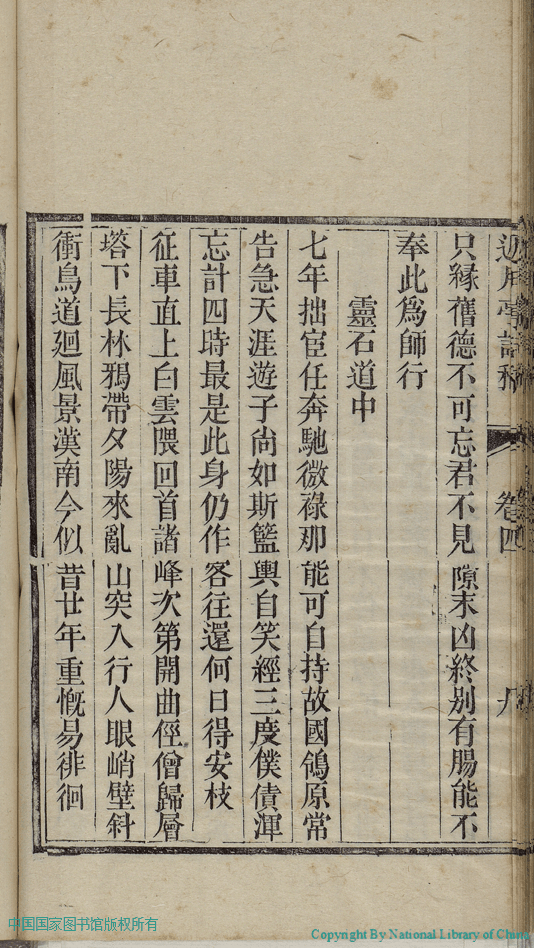 只緣舊德不可忘君不見隙末凶終別有腸能不
奉此為師行
靈石道中
七年拙宦任奔馳微祿那能可自持故國鴒原常
告急天涯遊子尚如斯籃輿自笑經三度僕債渾
忘計四時最是此身仍作客往還何日得安枝
征車直上白雲隈回首諸峰次第開曲徑僧歸層
塔下長林鴉帶夕陽來亂山突入行人眼峭壁斜
衝鳥道廻風景漢南今似昔廿年重慨易徘徊
卷四
中国国家图书馆版权所有
Copyright By National Library of China